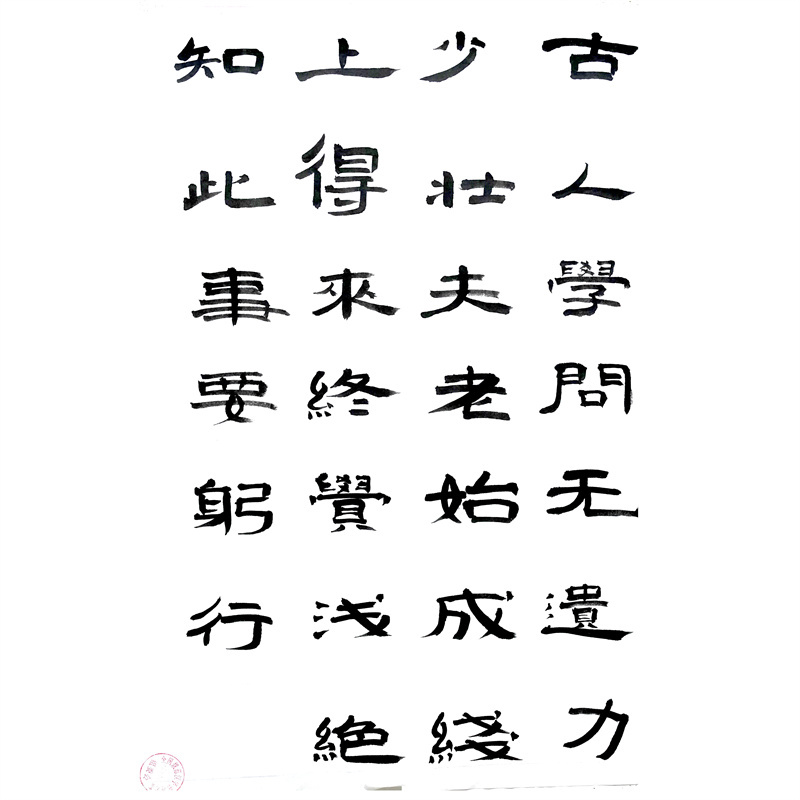 古人學問无遺力
少壮夫老始成綫
上得來終覺浅絕
知此事要躬行